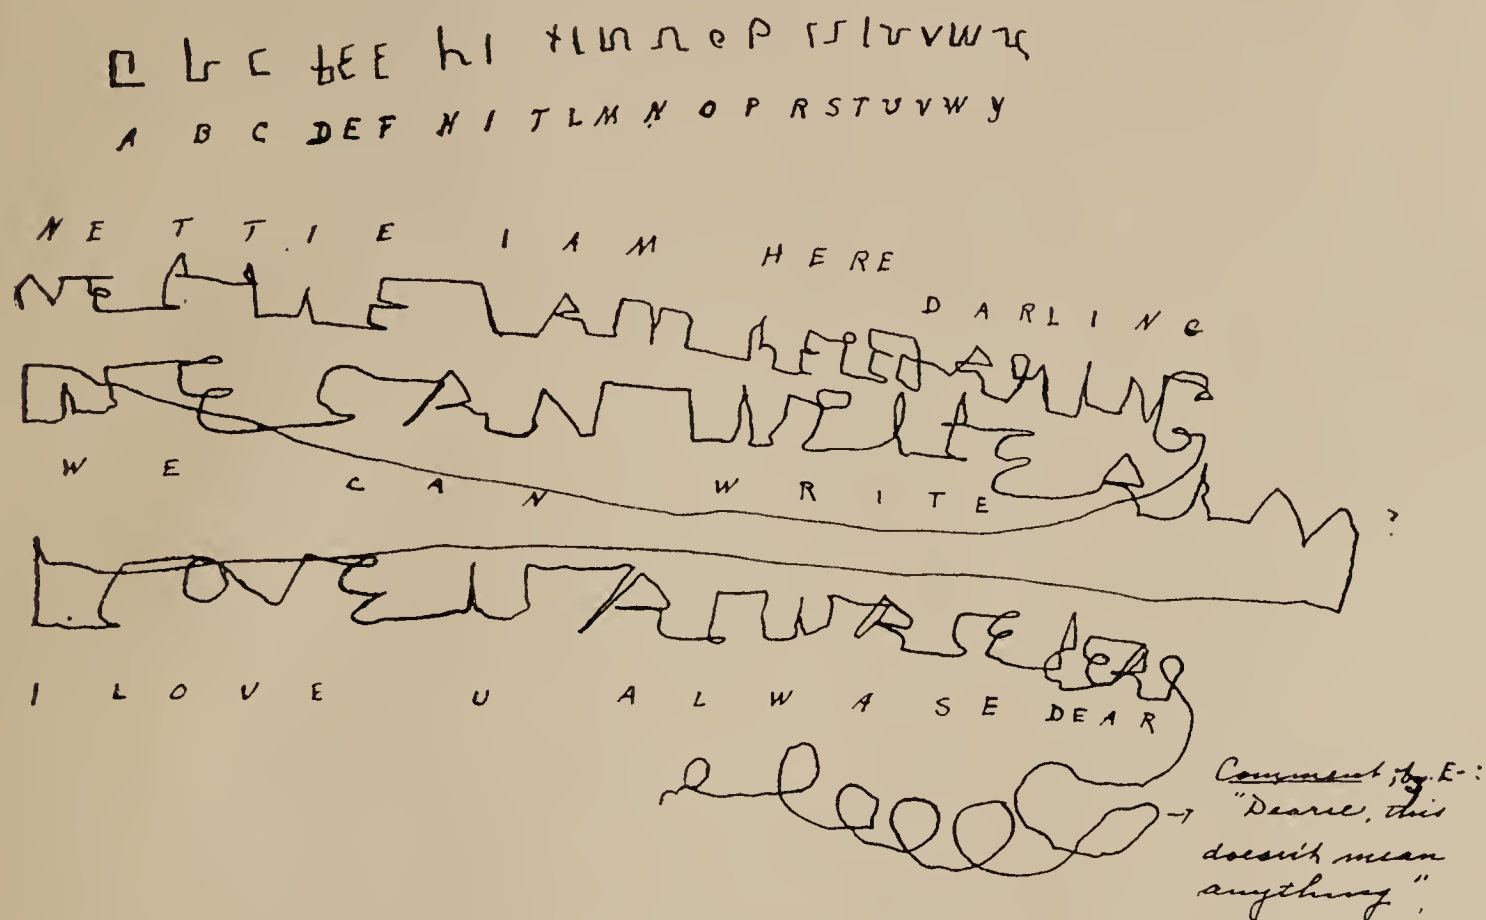 A B C D E F H I T L M N O P R S T U V W Y
NETTIE I AM HERE
DARLING
WE CAN WRITE
?
I LOVE U ALWASE DEAR
Comment, by E-:
"Dearie, this
doesn't mean
anything".